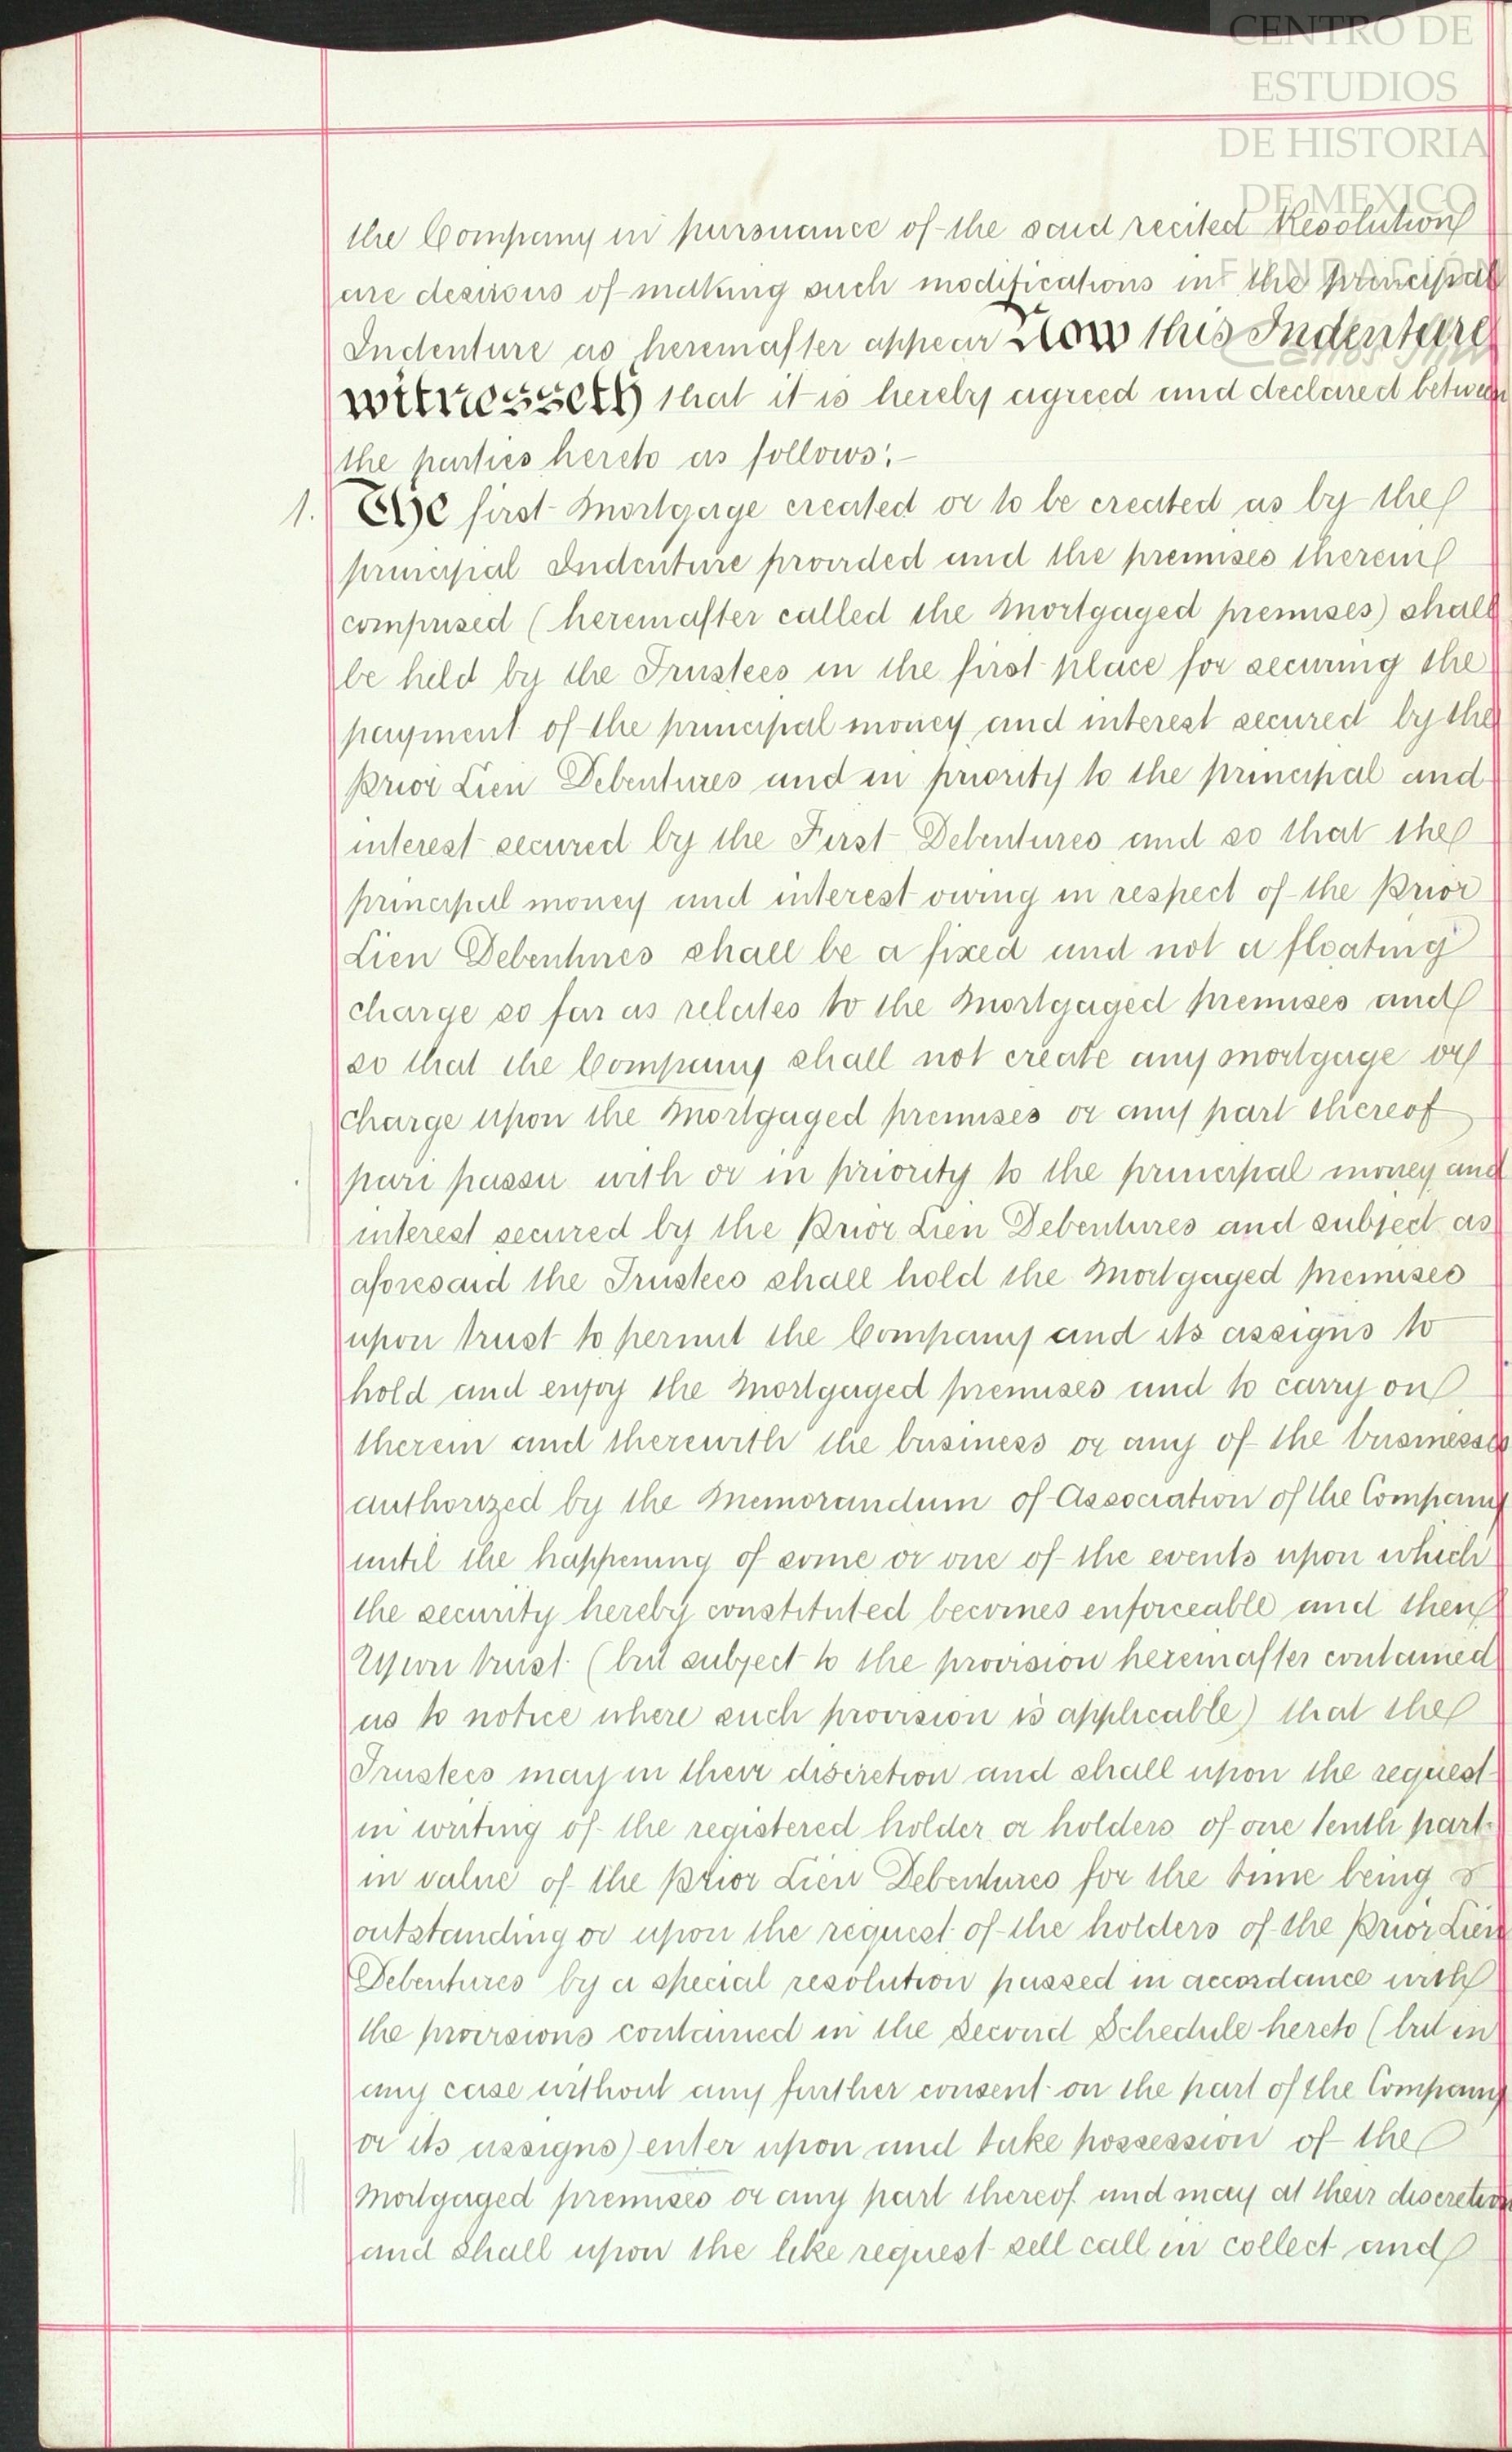 CENTRO DE
ESTUDIOS
DE HISTORIA
DE MEXICO
FUNDACIÓN
the Company in pursuance of the said recited Resolution
are desirous of making such modifications in the principal
Indenture as hereinafter appear Now this Indenture
witnesseth that it is hereby agreed and declared between
the parties hereto as follows:-
1. The first Mortgage created or to be created as by the
principal Indenture provided and the premises therein
comprised (hereinafter called the Mortgaged premises) shall
be held by the Trustees in the first place for securing the
payment of the principal money and interest secured by the
Prior Lien Debentures and in priority to the principal and
interest secured by the First Debentures and so that the
principal money and interest owing in respect of the Prior
Lien Debentures shall be a fixed and not a floating
charge so far as relates to the Mortgaged premises and
so that the Company shall not create any mortgage or
charge upon the Mortgaged premises or any part thereof
pari passu with or in priority to the principal money and
interest secured by the Prior Lien Debentures and subject as
aforesaid the Trustees shall hold the Mortgaged premises
upon trust to permit the Company and its assigns to
hold and enjoy the Mortgaged premises and to carry on
therein and therewith the business or any of the businesses
authorized by the Memorandum of Association of the Company
until the happening of some or one of the events upon which
the security hereby constituted becomes enforceable and then
Upon trust (but subject to the provision hereinafter contained
as to notice where such provision is applicable) that the
Trustees may in their discretion and shall upon the request
in writing of the registered holder or holders of one tenth part
in value of the Prior Lien Debentures for the time being
outstanding or upon the request of the holders of the Prior Lien
Debentures by a special resolution passed in accordance with
the provisions contained in the Second Schedule hereto (but in
any case without any further consent on the part of the Company
or its assigns) enter upon and take possession of the
Mortgaged premises or any part thereof and may at their discretion
and shall upon the like request sell call in collect and